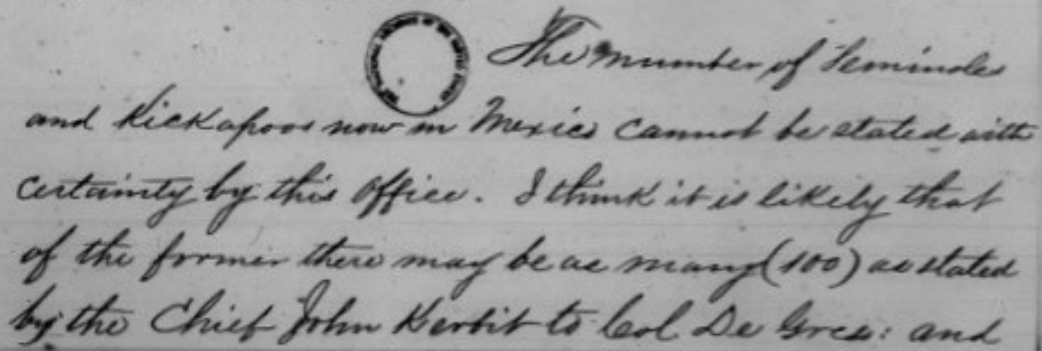 The number of Seminoles
and Kickapoos now in Mexico cannot be stated with
certainty by this office. I think it is likely that
of the former there may be as many (100) as stated
by the Chief John Kerbit to Col De Gres: and